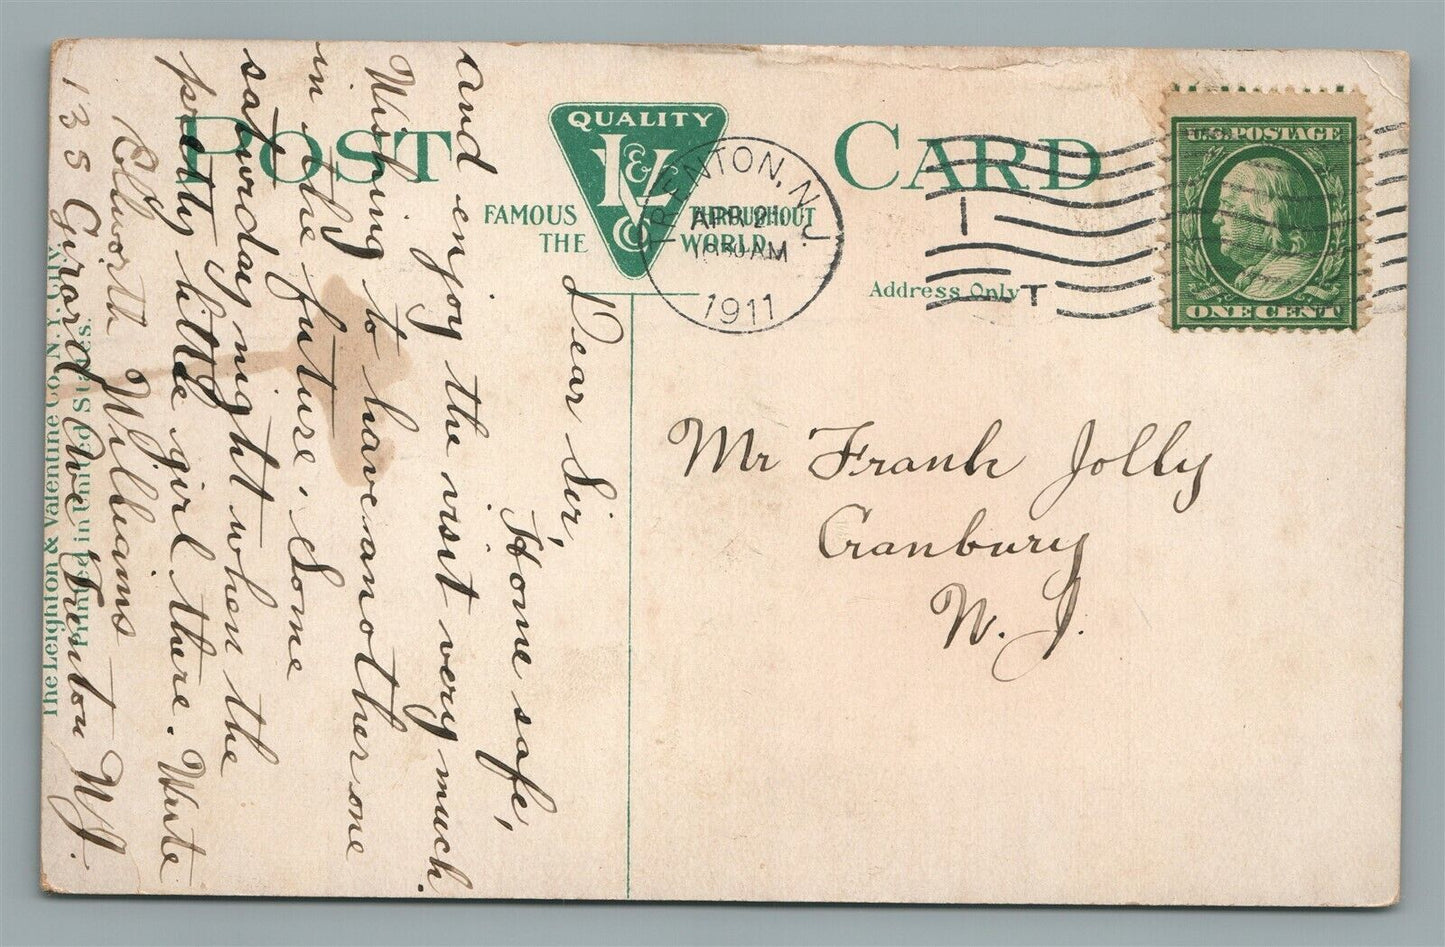 POST CARD
QUALITY
L & V Co
FAMOUS THROUGHOUT
THE WORLD
TRENTON, N.J.
APR 21
1911
1
T
U.S. POSTAGE
ONE CENT
Address Only
Mr Frank Jolly
Cranbury
N. J.
Dear Sir,
Home safe,
and enjoy the visit very much.
Wishing to have another one
in the future. Some
saturday night when the
pretty little girl there. Write
Ellworth Williams
135 Girard Ave Trenton NJ.
The Leighton & Valentine Co. N.Y. City.
Printed in United States.